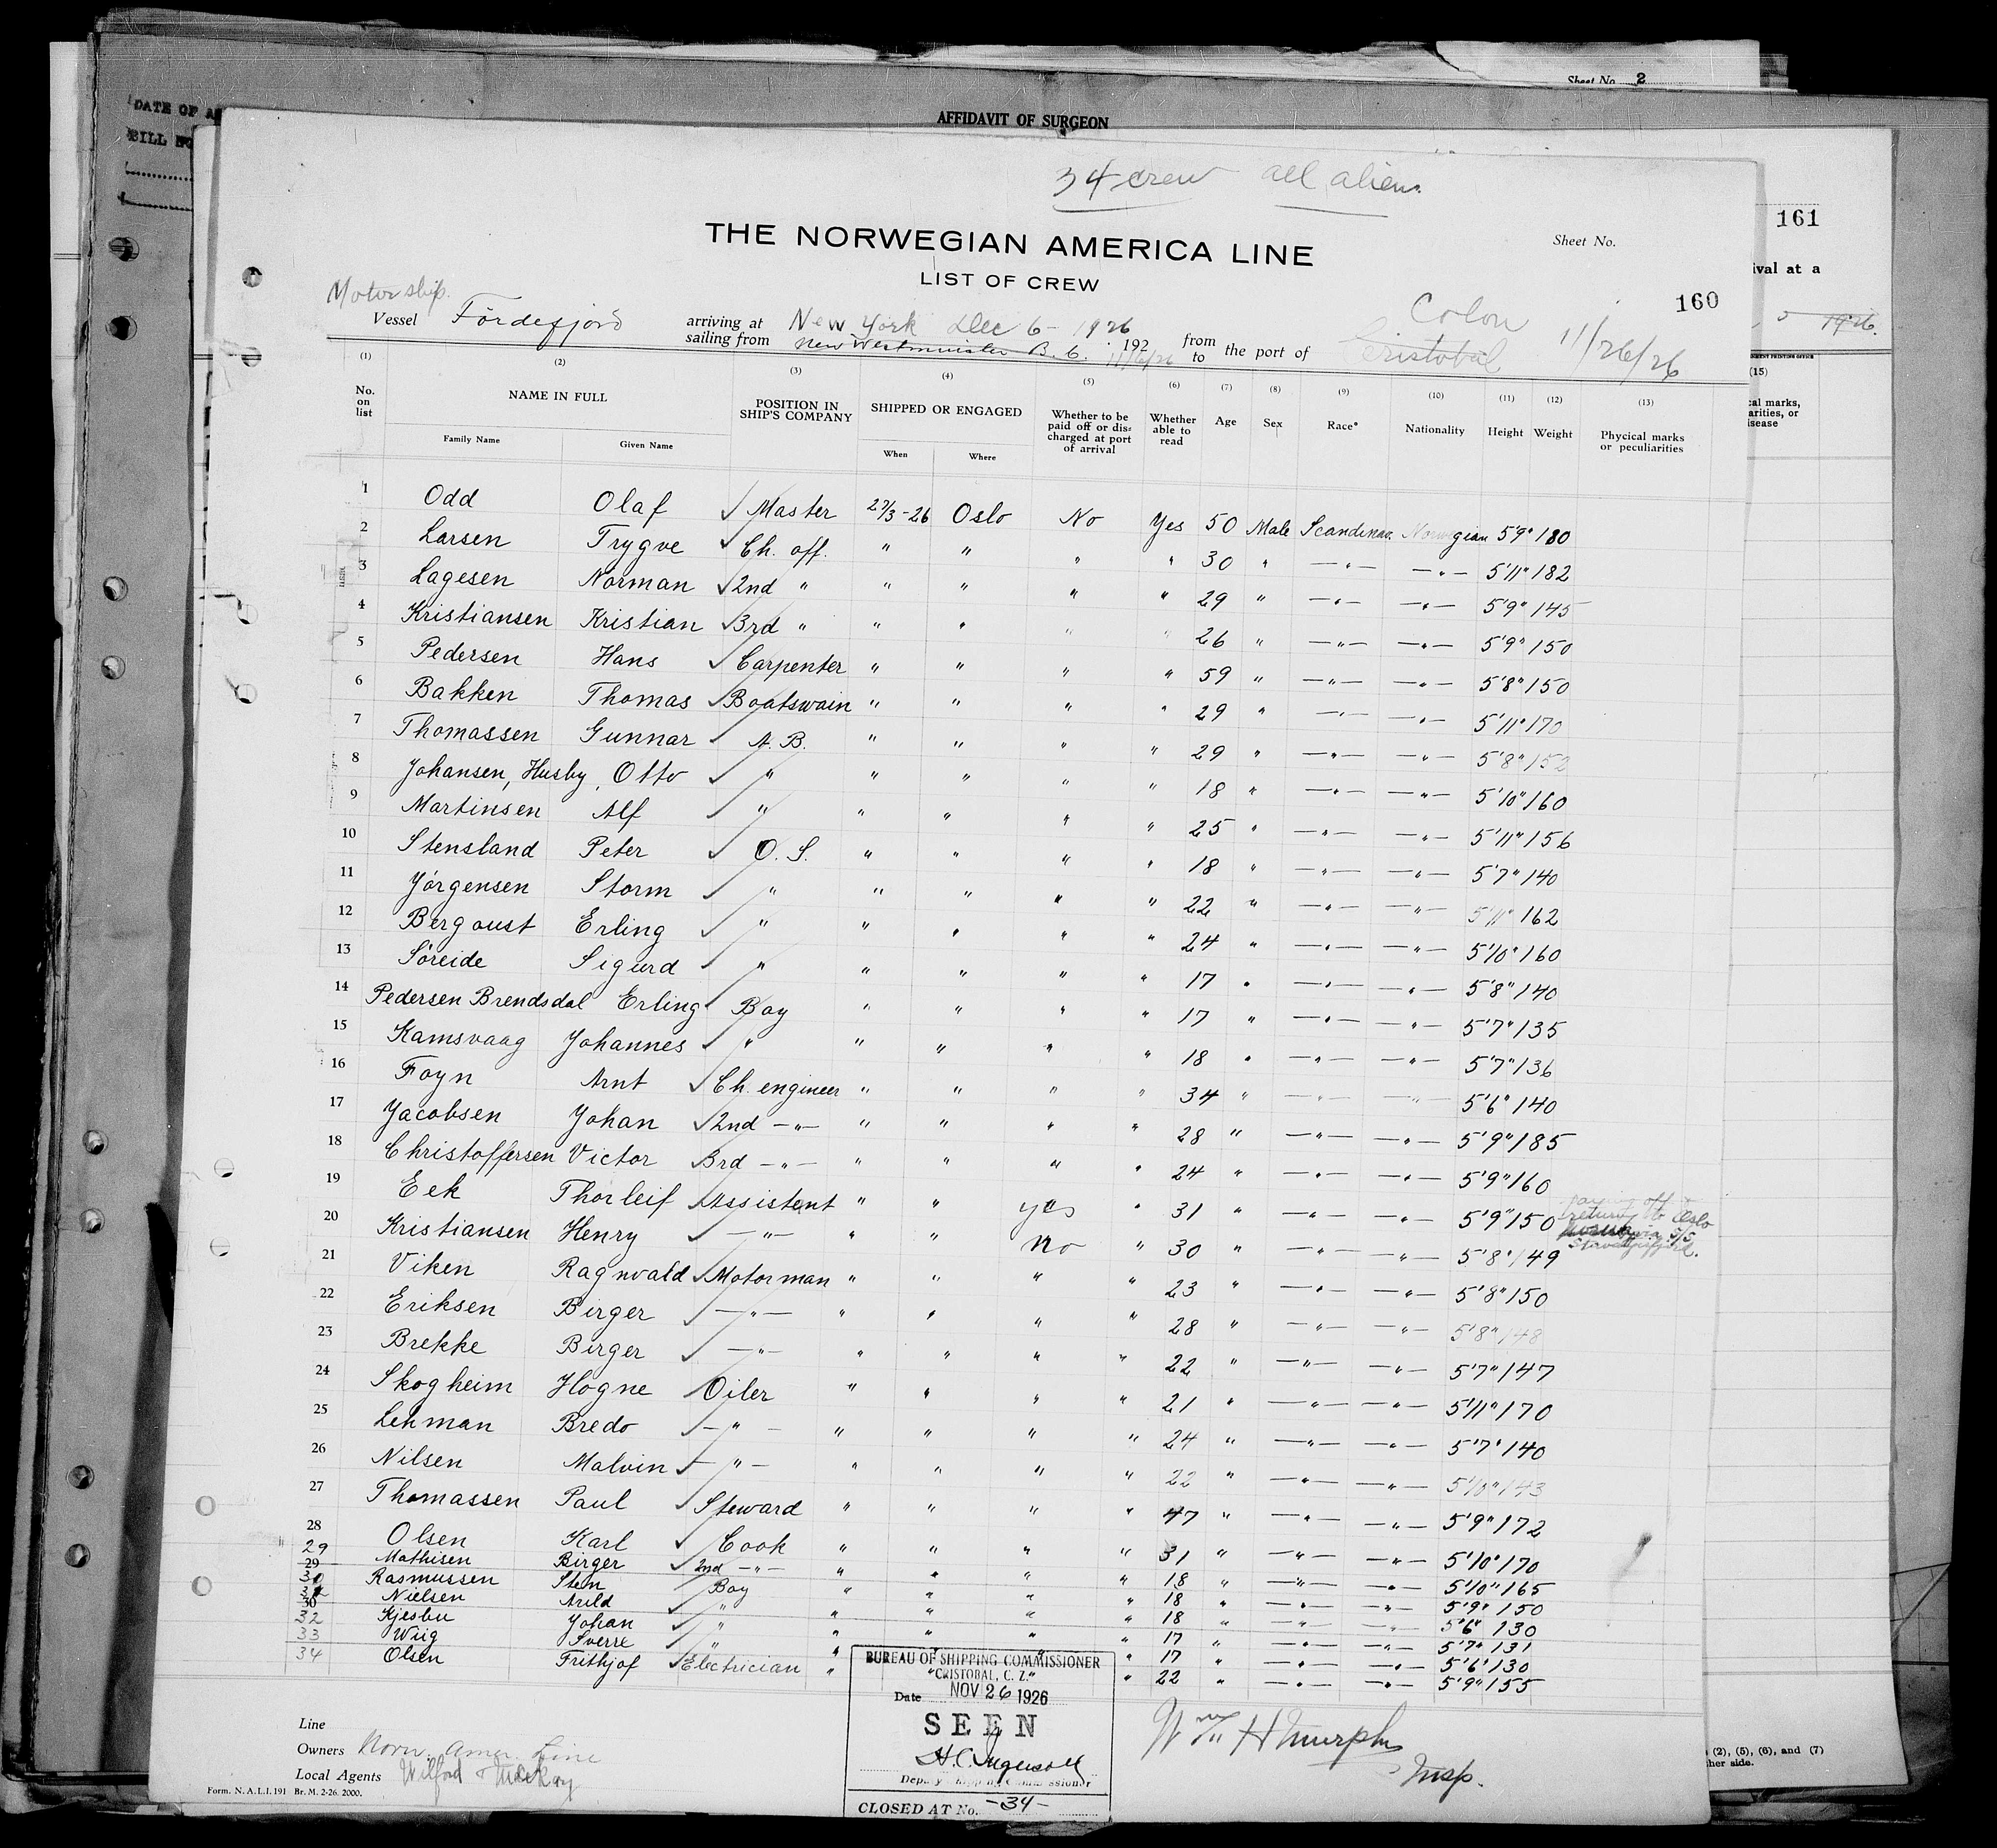 Sheet No. 2
DATE OF
BILL
AFFIDAVIT OF SURGEON
34 crew all aliens
161
THE NORWEGIAN AMERICA LINE
Sheet No.
LIST OF CREW
ival at a
160
Motorship.
Vessel Fördefjord arriving at New York Dec 6 - 1926 from Colon 11/26/26
sailing from New Westminster B. C. 192 to the port of Cristobal
1926.
(1) (2) (3) (4) (5) (6) (7) (8) (9) (10) (11) (12) (13)
(15)
No. on list NAME IN FULL POSITION IN SHIP'S COMPANY SHIPPED OR ENGAGED Whether to be paid off or dis= charged at port of arrival Whether able to read Age Sex Race* Nationality Height Weight Physical marks or peculiarities
cal marks,
arities, or
isease
Family Name Given Name When Where
1 Odd Olaf ✓ Master 27/3-26 Oslo No Yes 50 Male Scandinav. Norwegian 5'9" 180
2 Larsen Trygve ✓ Ch. off. " " " " 30 " —"— —"— 5'11" 182
3 Lagesen Norman ✓ 2nd " " " " " 29 " —"— —"— 5'9" 145
4 Kristiansen Kristian ✓ 3rd " " " " " 26 " —"— —"— 5'9" 150
5 Pedersen Hans ✓ Carpenter " " " " 59 " —"— —"— 5'8" 150
6 Bakken Thomas ✓ Boatswain " " " " 29 " —"— —"— 5'11" 170
7 Thomassen Gunnar ✓ A. B. " " " " 29 " —"— —"— 5'8" 152
8 Johansen, Husby, Otto ✓ " " " " " 18 " —"— —"— 5'10" 160
9 Martinsen Alf ✓ " " " " " 25 " —"— —"— 5'11" 156
10 Stensland Peter ✓ O. S. " " " " 18 " —"— —"— 5'7" 140
11 Jörgensen Storm ✓ " " " " " 22 " —"— —"— 5'11" 162
12 Bergoust Erling ✓ " " " " " 24 " —"— —"— 5'10" 160
13 Söreide Sigurd ✓ " " " " " 17 " —"— —"— 5'8" 140
14 Pedersen Brendsdal Erling ✓ Boy " " " " 17 " —"— —"— 5'7" 135
15 Kamsvaag Johannes ✓ " " " " " 18 " —"— —"— 5'7" 136
16 Foyn Arnt ✓ Ch. engineer " " " " 34 " —"— —"— 5'6" 140
17 Jacobsen Johan ✓ 2nd —"— " " " " 28 " —"— —"— 5'9" 185
18 Christoffersen Victor ✓ 3rd —"— " " " " 24 " —"— —"— 5'9" 160
19 Eek Thorleif ✓ Assistent " " yes " 31 " —"— —"— 5'9" 150 paying off return to Oslo S/S Stavangerfjord.
20 Kristiansen Henry ✓ —"— " " No " 30 " —"— —"— 5'8" 149
21 Viken Ragnvald ✓ Motorman " " " " 23 " —"— —"— 5'8" 150
22 Eriksen Birger ✓ —"— " " " " 28 " —"— —"— 5'8" 148
23 Brekke Birger ✓ —"— " " " " 22 " —"— —"— 5'7" 147
24 Skogheim Hogne ✓ Oiler " " " " 21 " —"— —"— 5'11" 170
25 Lehman Bredo ✓ —"— " " " " 24 " —"— —"— 5'7" 140
26 Nilsen Malvin ✓ —"— " " " " 22 " —"— —"— 5'10" 143
27 Thomassen Paul ✓ Steward " " " " 47 " —"— —"— 5'9" 172
28 Olsen Karl ✓ Cook " " " " 31 " —"— —"— 5'10" 170
29 Mathisen Birger ✓ 2nd —"— " " " " 18 " —"— —"— 5'10" 165
30 Rasmussen Sten Boy " " " " 18 " —"— —"— 5'9" 150
31 Nielsen Arild ✓ " " " " " 18 " —"— —"— 5'6" 130
32 Kjesbu Johan ✓ " " " " " 17 " —"— —"— 5'7" 131
33 Wiig Sverre ✓ " " " " " 17 " —"— —"— 5'6" 130
34 Olsen Frithjof ✓ Electrician " " " " 22 " —"— —"— 5'9" 155
BUREAU OF SHIPPING COMMISSIONER
"CRISTOBAL, C. Z."
Date NOV 26 1926
SEEN
H C Ingersoll
Deputy Shipping Commissioner
CLOSED AT No. -34-
Wm H Murphy
Insp.
Line
Owners Norw. Amer. Line
Local Agents Wilford & McKay
Form. N. A. L. I. 191 Br. M. 2-26. 2000.
(2), (5), (6), and (7)
her side.